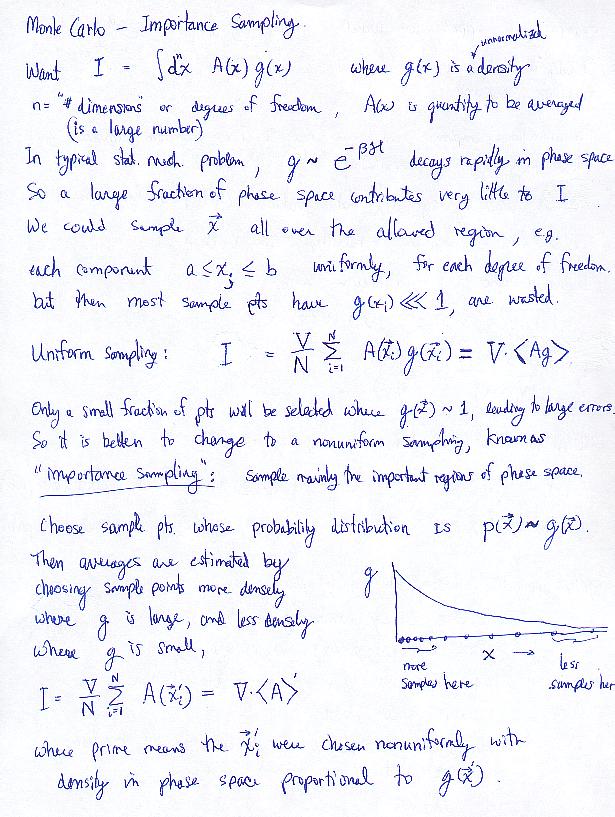 Monte Carlo - Importance Sampling.
unnormalized
Want I = ∫dⁿx A(x) g(x) where g(x) is a density
n = "# dimensions" or degrees of freedom, A(x) is quantity to be averaged
(is a large number)
In typical stat. mech. problem, g ~ e^{-βH} decays rapidly in phase space
So a large fraction of phase space contributes very little to I
We could sample x⃗ all over the allowed region, e.g.
each component a ≤ x_j ≤ b uniformly, for each degree of freedom.
but then most sample pts have g(x_i) <<< 1, are wasted.
Uniform sampling: I = V/N Σ_{i=1}^{N} A(x⃗_i) g(x⃗_i) = V·<Ag>
Only a small fraction of pts will be selected where g(x⃗) ~ 1, leading to large errors.
So it is better to change to a nonuniform sampling, known as
"importance sampling": Sample mainly the important regions of phase space.
Choose sample pts. whose probability distribution is p(x⃗) ~ g(x⃗).
Then averages are estimated by
choosing sample points more densely
where g is large, and less densely
where g is small,
g
x →
more
samples here
less
samples her
I = V/N Σ_{i=1}^{N} A(x⃗_i') = V·<A>'
where prime means the x⃗_i' were chosen nonuniformly with
density in phase space proportional to g(x⃗').